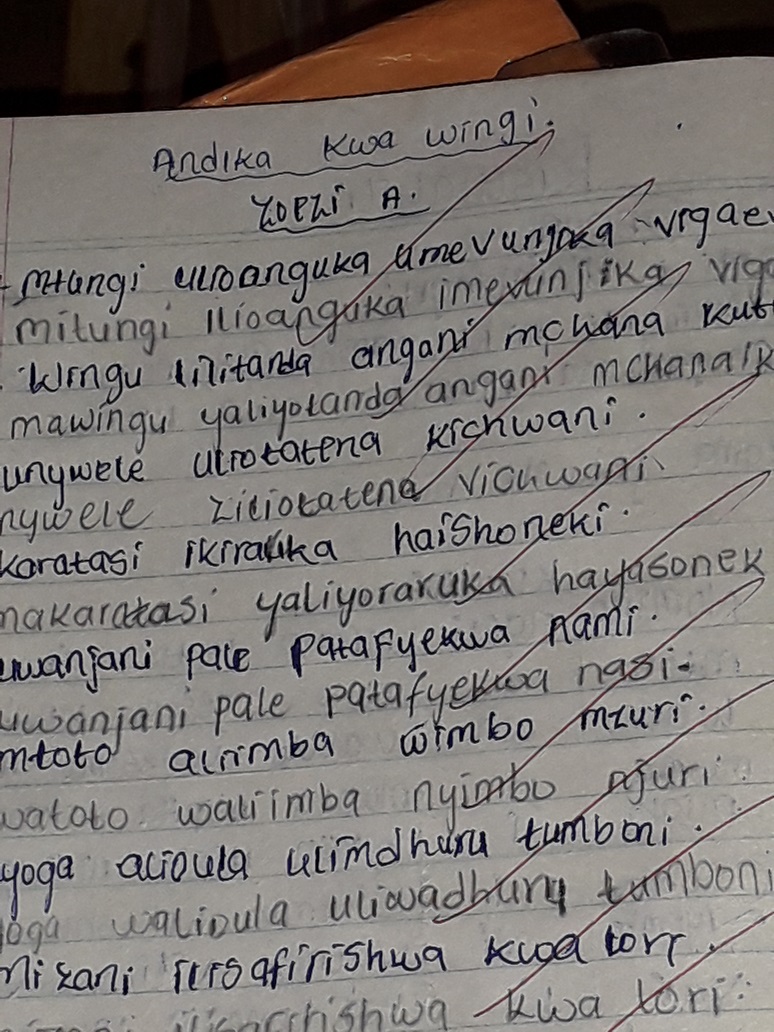 Andika Kwa wingi.
ZOEZI A.
Mtungi ulioanguka umevunjika vigae
mitungi ilioanguka imevunjika viga
Wingu lilitanda angani mchana kut
mawingu yaliyotanda angani mchana
unywele uliotatena kichwani.
nywele ziliotatena vichwani.
Karatasi ikiraruka haishoneki.
makaratasi yaliyoraruka hayasonek
uwanjani pale patafyekwa nami.
uwanjani pale patafyekwa nasi.
mtoto aliimba wimbo mzuri.
watoto waliimba nyimbo njuri.
yoga alioula ulimdhuru tumboni.
yoga walioula uliwadhuru tumboni
Mizani ilisafirishwa kwa lori.
kwa lori.